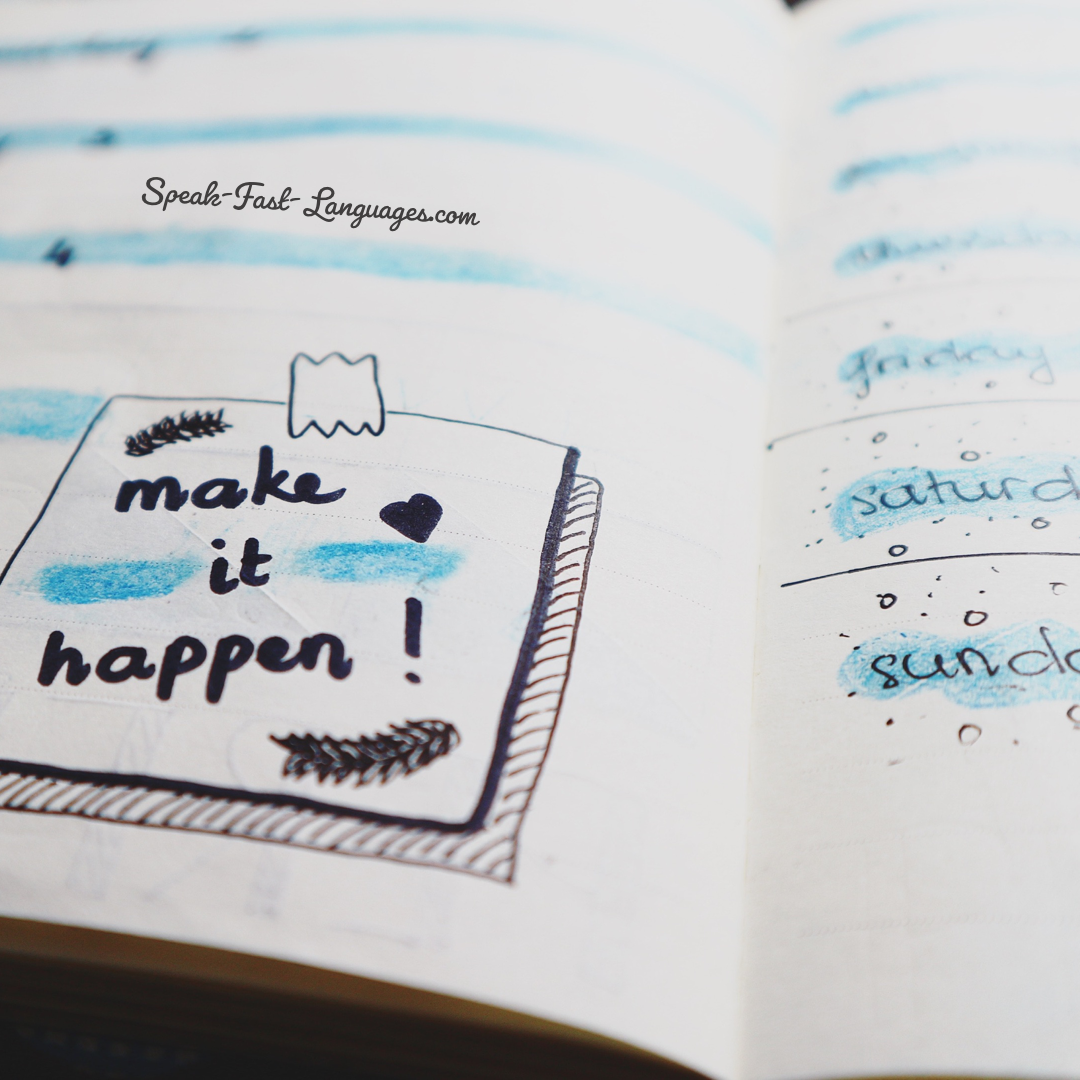 Speak-Fast-Languages.com
make
it
happen !
friday
saturd
sunda